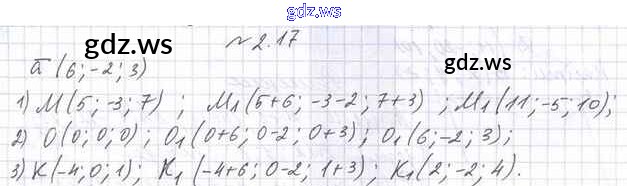 gdz.ws
№2.17
gdz.ws
gdz.ws
ā (6; -2; 3)
1) M(5; -3; 7) ; M₁(5+6; -3-2; 7+3) ; M₁(11; -5; 10);
2) O(0; 0; 0); O₁(0+6; 0-2; 0+3); O₁(6; -2; 3);
3) K(-4; 0; 1); K₁(-4+6; 0-2; 1+3); K₁(2; -2; 4).